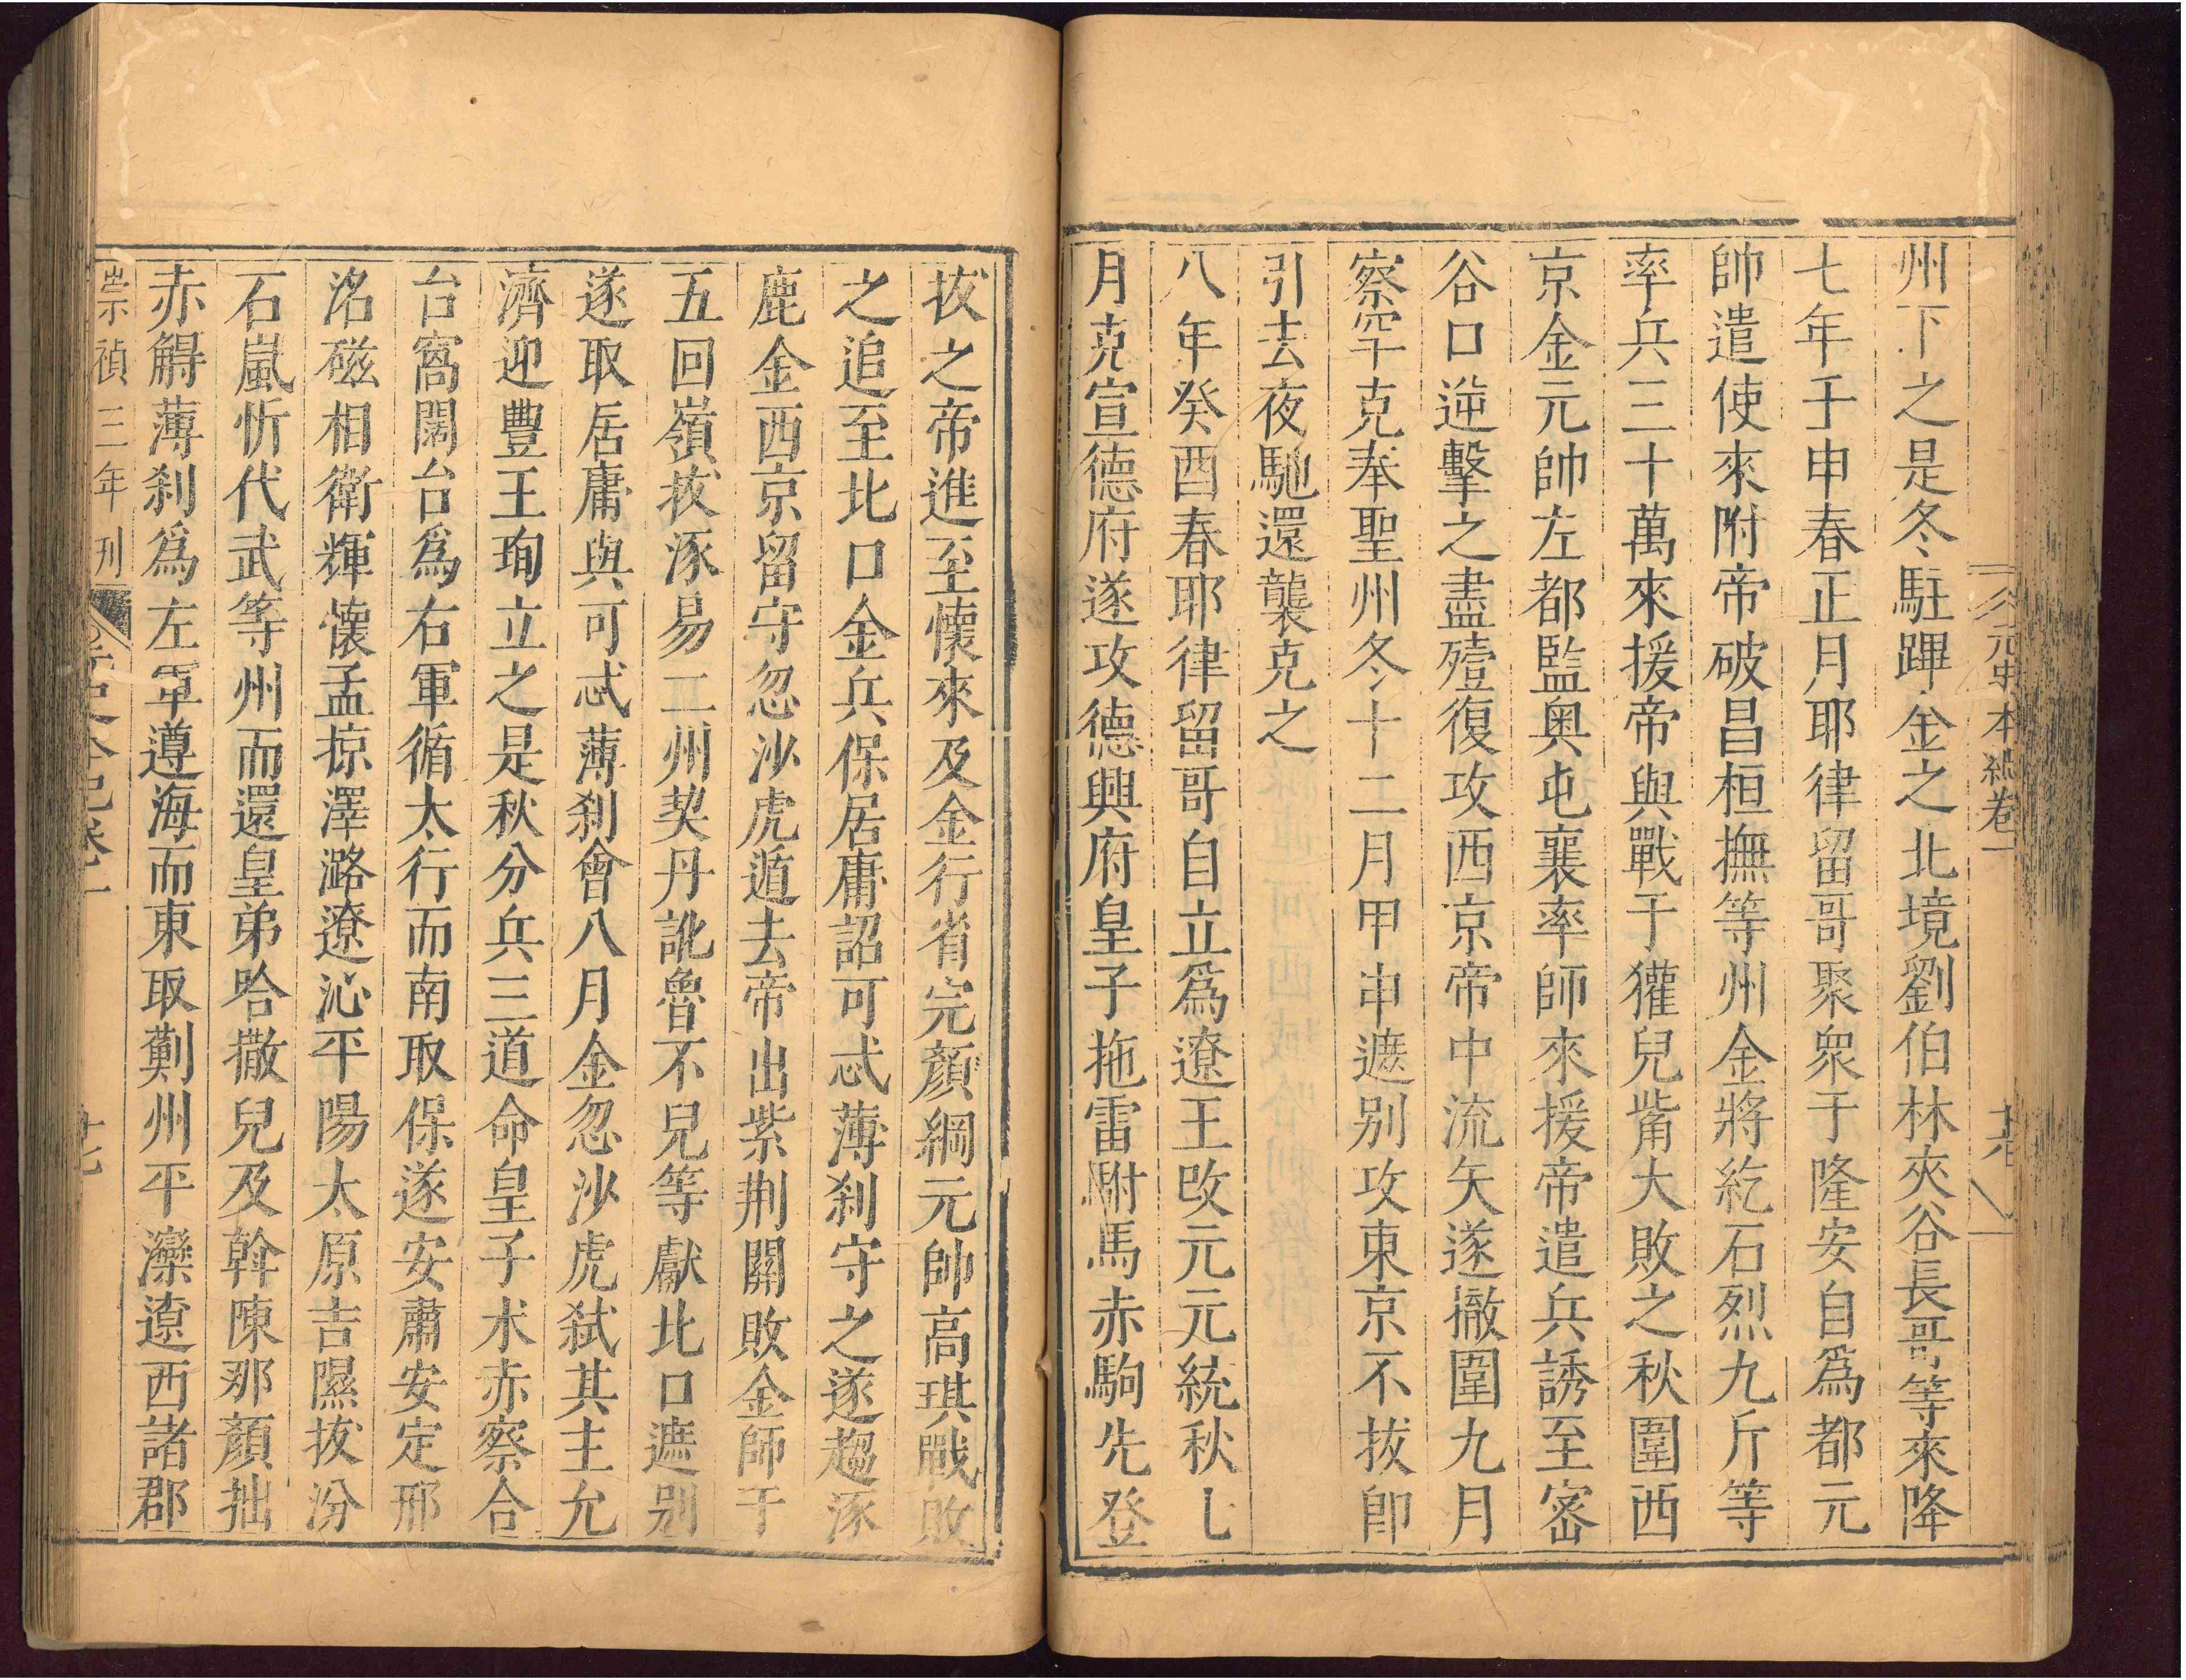 元史本紀卷一
州下之是冬駐蹕金之北境劉伯林夾谷長哥等來降
七年壬申春正月耶律留哥聚衆于隆安自爲都元
帥遣使來附帝破昌桓撫等州金將紇石烈九斤等
率兵三十萬來援帝與戰于獾兒觜大敗之秋圍西
京金元帥左都監奥屯襄率師來援帝遣兵誘至宻
谷口逆擊之盡殪復攻西京帝中流矢遂撤圍九月
察罕克奉聖州冬十二月甲申遮别攻東京不拔卽
引去夜馳還襲克之
八年癸酉春耶律留哥自立爲遼王改元元統秋七
月克宣德府遂攻德興府皇子拖雷駙馬赤駒先登
拔之帝進至懷來及金行省完顏綱元帥高琪戰敗
之追至北口金兵保居庸詔可忒薄刹守之遂趨涿
鹿金西京留守忽沙虎遁去帝出紫荆關敗金師于
五回嶺拔涿易二州契丹訛魯不兒等獻北口遮别
遂取居庸與可忒薄刹會八月金忽沙虎弑其主允
濟迎豐王珣立之是秋分兵三道命皇子朮赤察合
台窩闊台爲右軍循太行而南取保遂安肅安定邢
洺磁相衛輝懷孟掠澤潞遼沁平陽太原吉隰拔汾
石嵐忻代武等州而還皇弟哈撒兒及斡陳那顏拙
赤䚟薄刹爲左軍遵海而東取薊州平灤遼西諸郡
崇禎三年刊